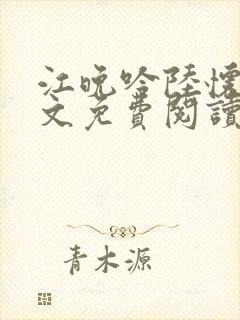 江晚吟陸懷
文免費閱讀
青木源